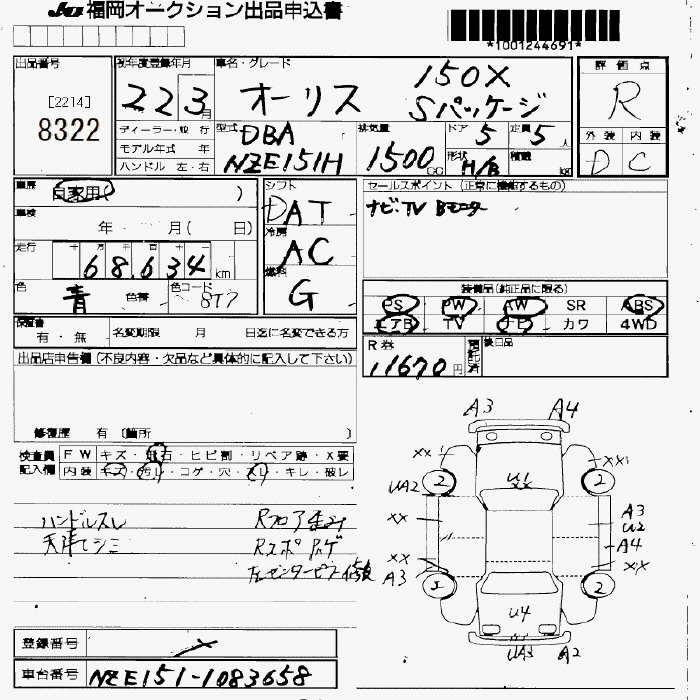 JU 福岡オークション出品申込書
*1001244691*
出品番号 初年度登録年月 車名・グレード 評価点
[2214] 22 3月 オーリス 150X Sパッケージ R
8322
ディーラー・並行 型式 DBA 排気量 ドア 5 定員 5人 外装 内装
モデル年式 年 NZE151H 1500CC 形状 H/B 積載 kg D C
ハンドル 左・右
車歴 自家用( ) シフト DAT セールスポイント(正常に機能するもの)
車検 年 月( 日) 冷房 AC ナビ.TV Bモニター
走行 68,634 km 燃料 G
色 青 色替 色コード 8T7
装備品(純正品に限る)
PS PW AW SR ABS
エアB TV ナビ カワ 4WD
保証書 有・無 名変期限 月 日迄に名変できる方
R券 11670円 預託済 後日品
出品店申告欄(不良内容・欠品など具体的に記入して下さい)
修復歴 有 〔箇所 〕
検査員 FW キズ・飛石・ヒビ割・リペア跡・X要
記入欄 内装 キズ・汚れ・コゲ・穴・スレ・キレ・破レ
ハンドルスレ
天張てシミ
A3 A4
XX U1 XX XX
2 2
UA2 A3
XX U2
A4
XX XX
A3
3 2
U4
UA3 A2
登録番号
車台番号 NZE151-1083658